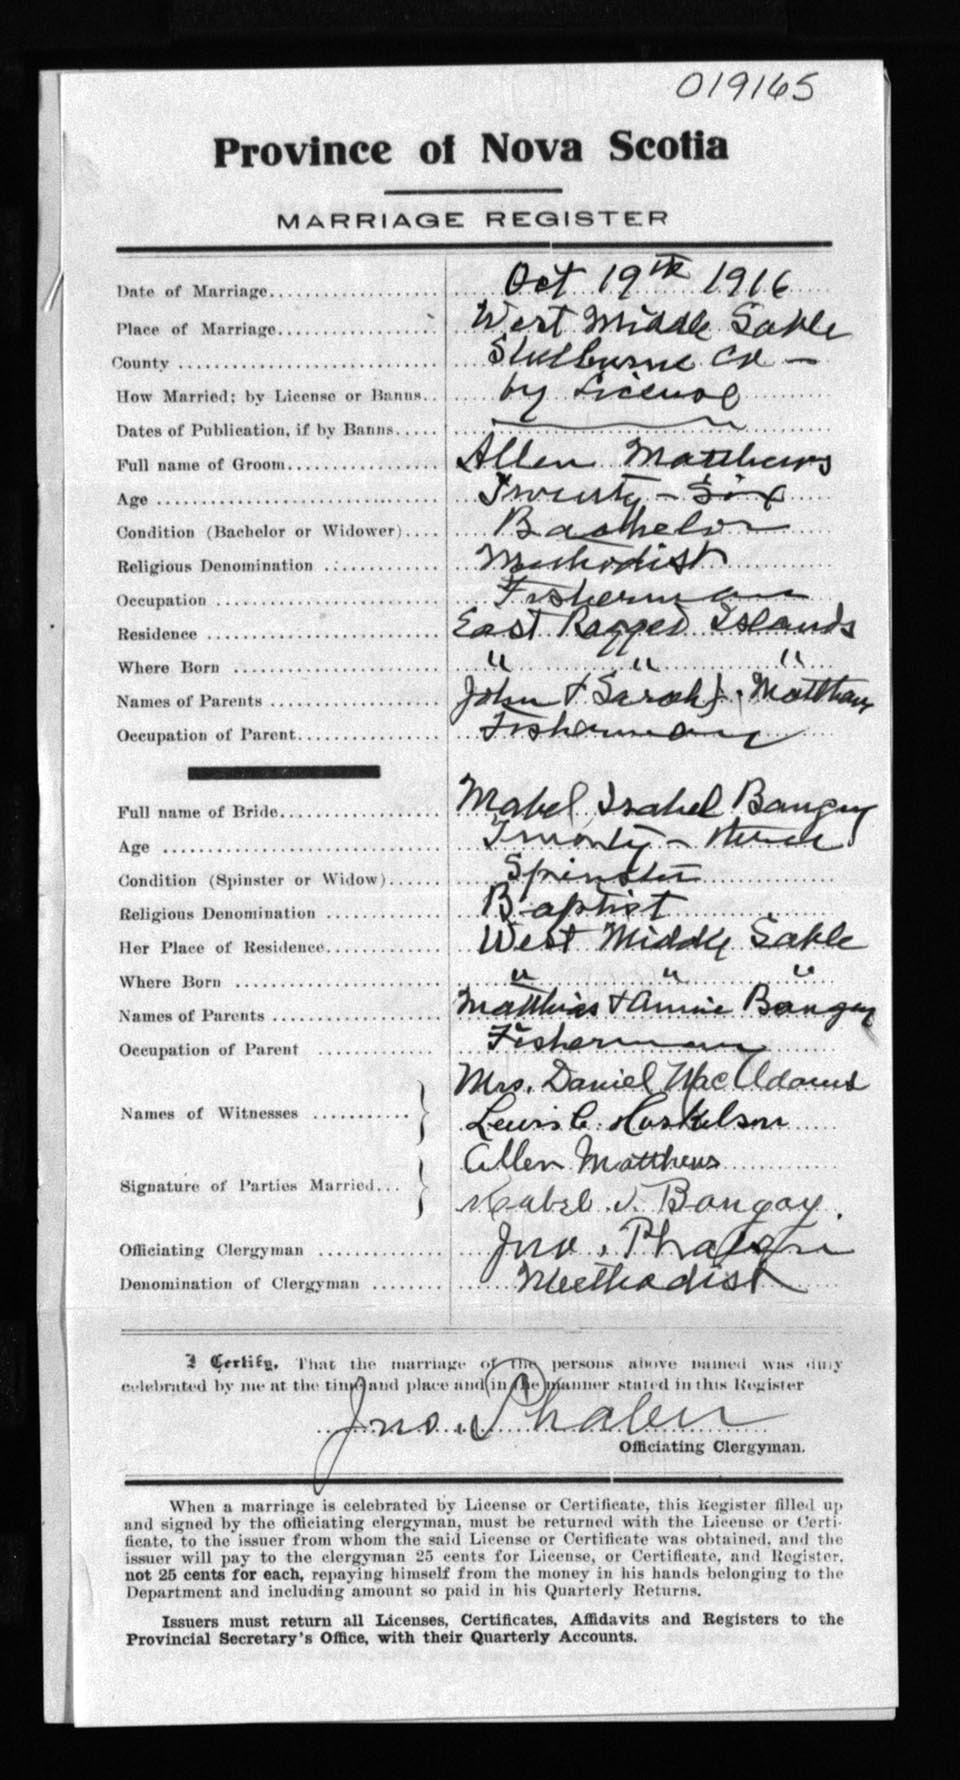 019165
Province of Nova Scotia
MARRIAGE REGISTER
Date of Marriage.................... Oct 19th 1916
Place of Marriage.................. West Middle Sable
County ............................. Shelburne Co —
How Married; by License or Banns.. by License
Dates of Publication, if by Banns.....
Full name of Groom.................. Allen Matthews
Age ................................ Twenty - Six
Condition (Bachelor or Widower).... Bachelor
Religious Denomination ............. Methodist
Occupation ......................... Fisherman
Residence .......................... East Ragged Islands
Where Born ........................ " " "
Names of Parents ................... John & Sarah J. Matthews
Occupation of Parent................ Fisherman
Full name of Bride.................. Mabel Isabel Bangay
Age ................................ Twenty - three
Condition (Spinster or Widow)...... Spinster
Religious Denomination ............. Baptist
Her Place of Residence.............. West Middle Sable
Where Born ........................ " " "
Names of Parents ................... Matthias & Annie Bangay
Occupation of Parent ............. Fisherman
Mrs. Daniel MacAdams
Names of Witnesses ...........
Lewis C.
Allen Matthews
Signature of Parties Married...
Mabel I. Bangay.
Officiating Clergyman .............. Jno. Phalen
Denomination of Clergyman ......... Methodist
I Certify, That the marriage of the persons above named was duly
celebrated by me at the time and place and in the manner stated in this Register
Jno. Phalen
Officiating Clergyman.
When a marriage is celebrated by License or Certificate, this Register filled up
and signed by the officiating clergyman, must be returned with the License or Certi-
ficate, to the issuer from whom the said License or Certificate was obtained, and the
issuer will pay to the clergyman 25 cents for License, or Certificate, and Register,
not 25 cents for each, repaying himself from the money in his hands belonging to the
Department and including amount so paid in his Quarterly Returns.
Issuers must return all Licenses, Certificates, Affidavits and Registers to the
Provincial Secretary's Office, with their Quarterly Accounts.